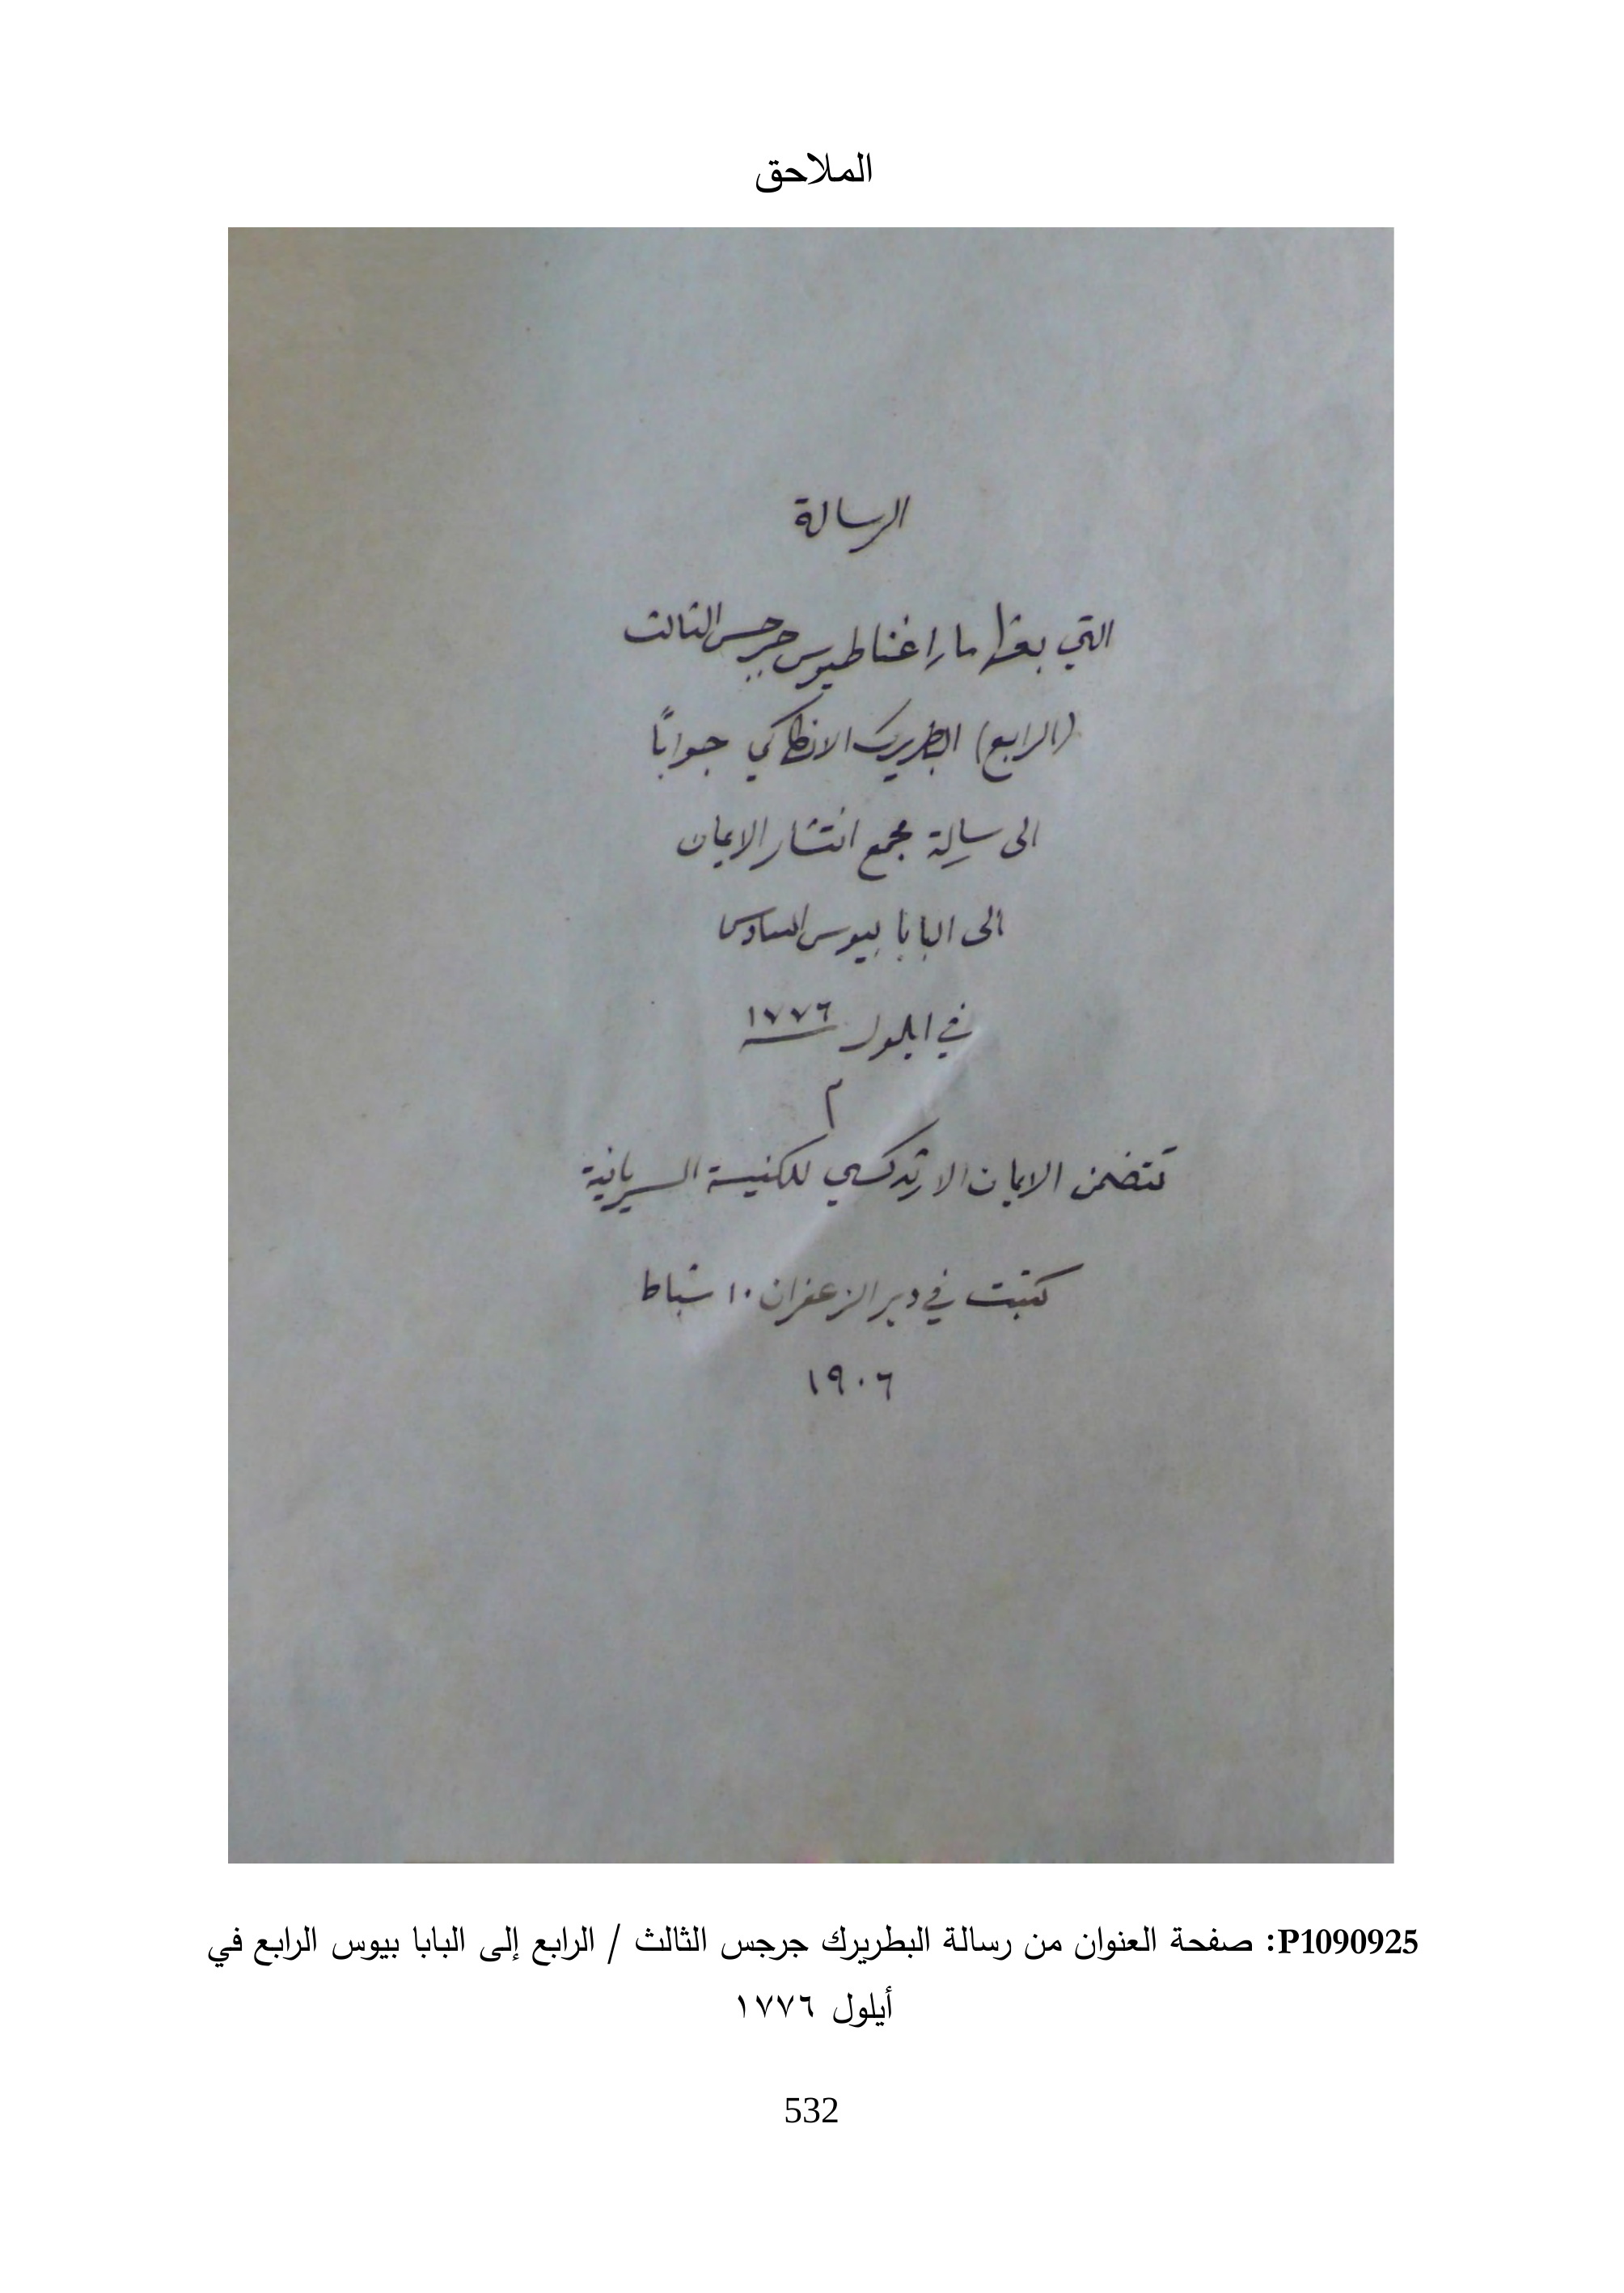 الملاحق
الرسالة
التي بعثها مار اغناطيوس جرجس الثالث
(الرابع) البطريرك الانطاكي جواباً
الى رسالة مجمع انتشار الايمان
الى البابا بيوس السادس
في ايلول ١٧٧٦
م
تتضمن الايمان الارثدكسي للكنيسة السريانية
كتبت في دير الزعفران ١٠ شباط
١٩٠٦
P1090925: صفحة العنوان من رسالة البطريرك جرجس الثالث / الرابع إلى البابا بيوس الرابع في
أيلول ١٧٧٦
532